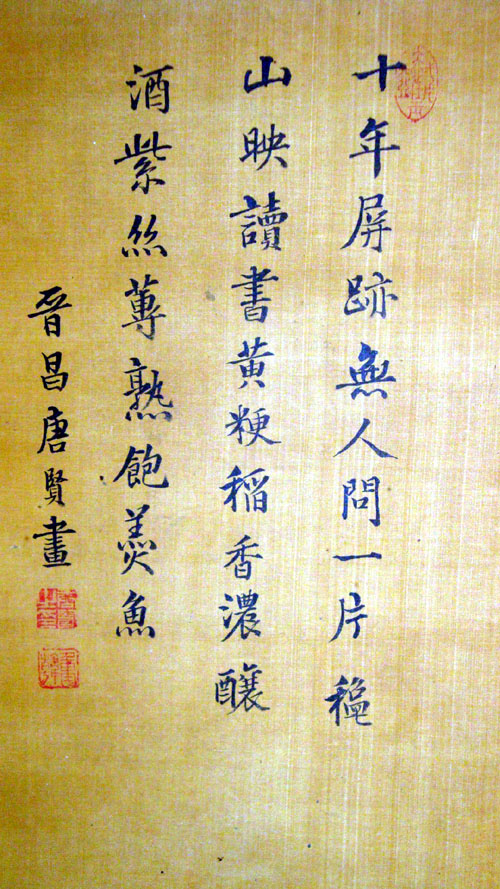 十年屏跡無人問一片穐
山映讀書黃粳稻香濃釀
酒紫絲蓴熟飽羹魚
晉昌唐賢畫